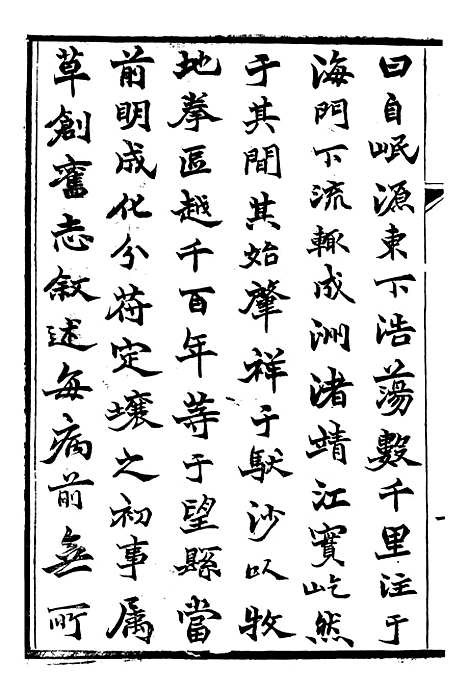 曰自岷源東下浩蕩數千里注于
海門下流輙成洲渚靖江實屹然
于其間其始肇祥于馱沙以牧
地拳區越千百年䓁于望縣當
前明成化分苻定壤之初事属
草創舊志叙述每病前無所